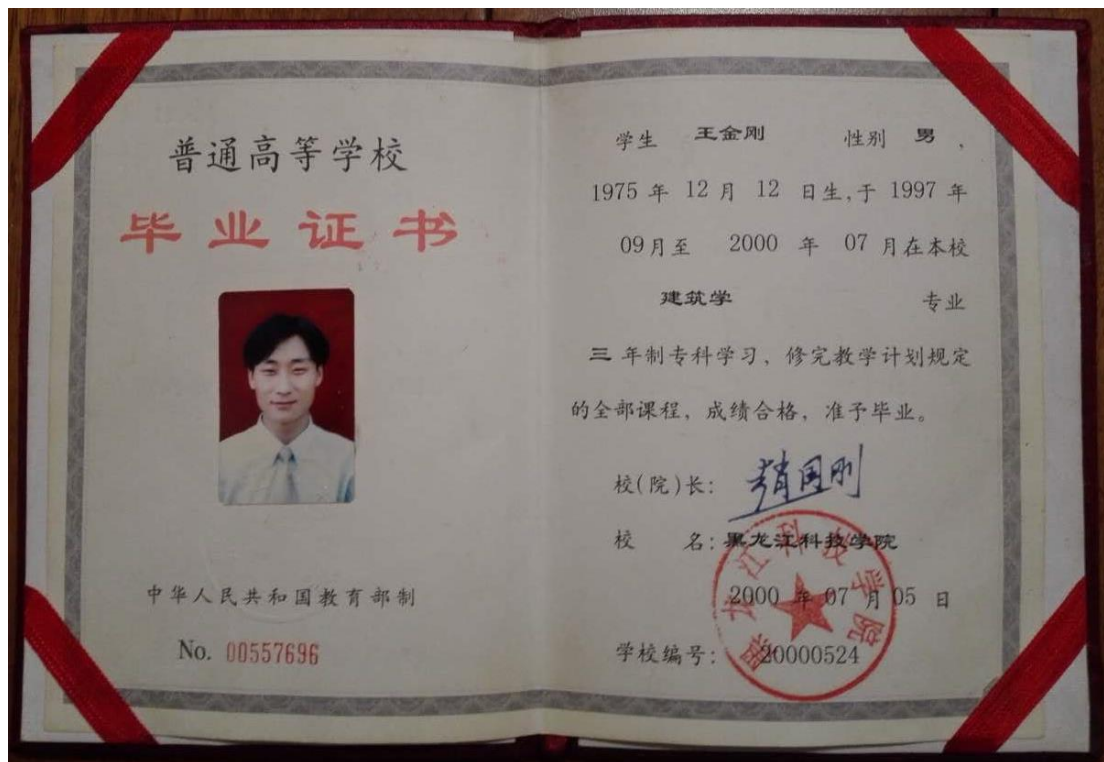 普通高等学校
毕业证书
中华人民共和国教育部制
No. 00557696
学生 王金刚 性别 男，
1975 年 12 月 12 日生,于 1997 年
09 月至 2000 年 07 月在本校
建筑学 专业
三 年制专科学习，修完教学计划规定
的全部课程，成绩合格，准予毕业。
校(院)长： 赵国刚
校 名：黑龙江科技学院
2000 年 07 月 05 日
学校编号： 20000524
黑龙江科技学院